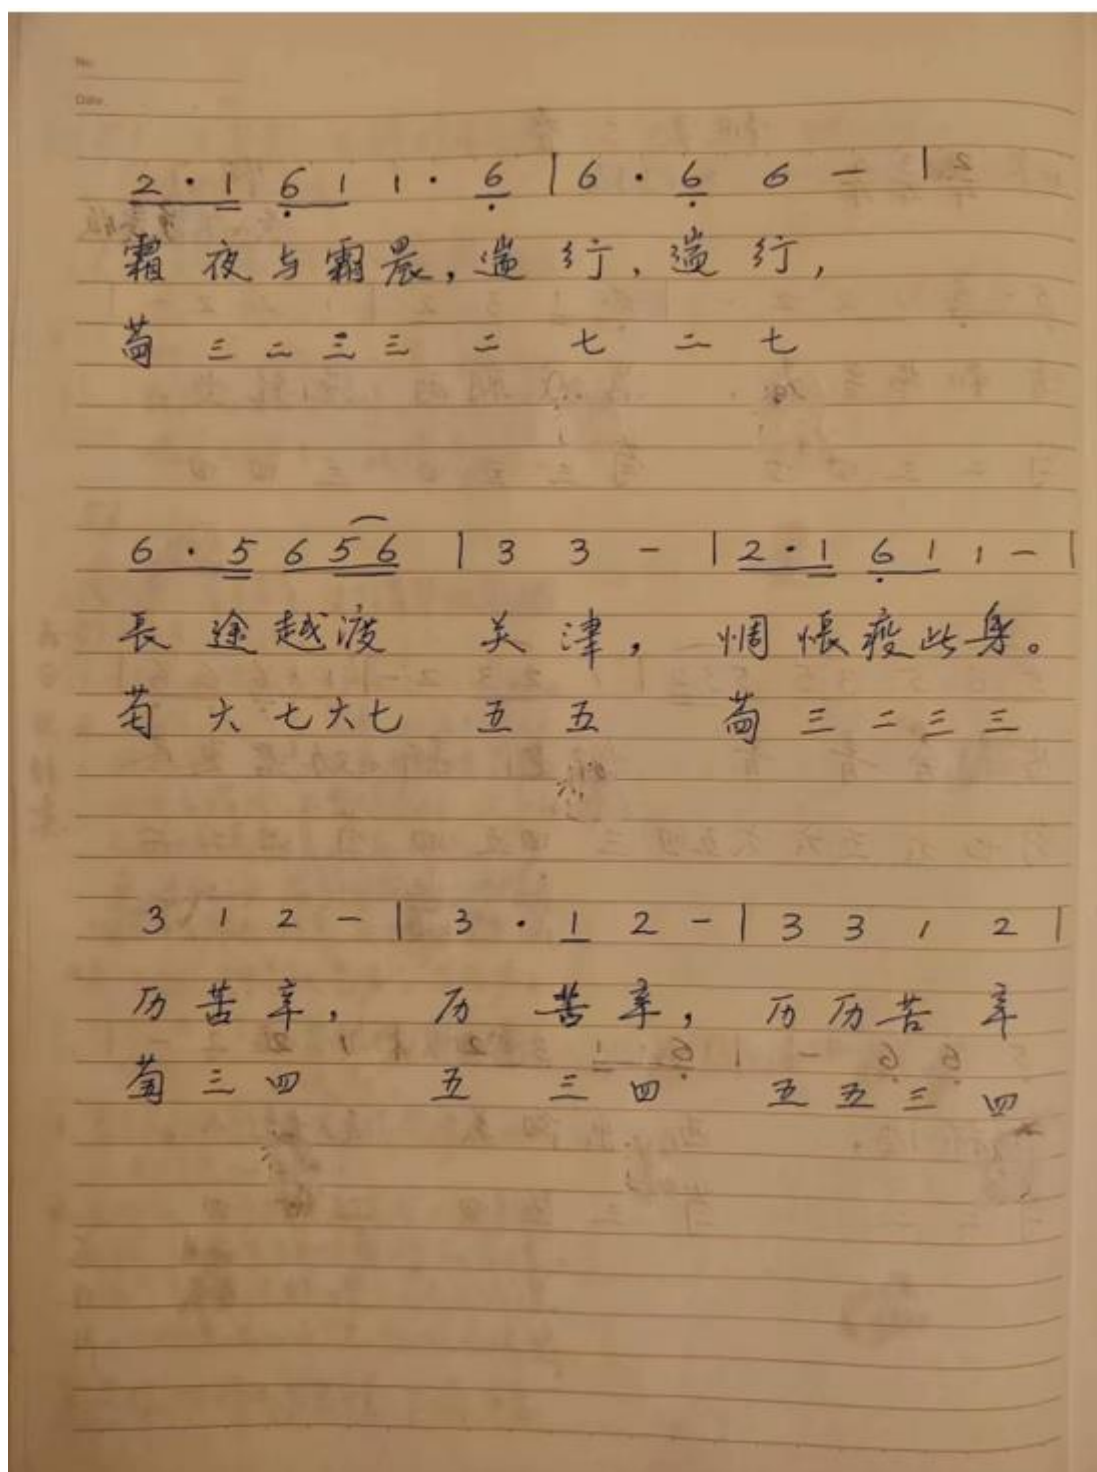 No.
Date.
2·1 61 1·6 | 6·6 6 - |
霜夜与霜晨，遄行，遄行，
三二三三二七二七
6·5 656 | 3 3 - | 2·1 61 1 - |
長途越渡关津，惆怅疫此身。
六七六七五五 三二三三
3 1 2 - | 3·1 2 - | 3 3 1 2 |
历苦辛，历苦辛，历历苦辛
三四五三四五五三四